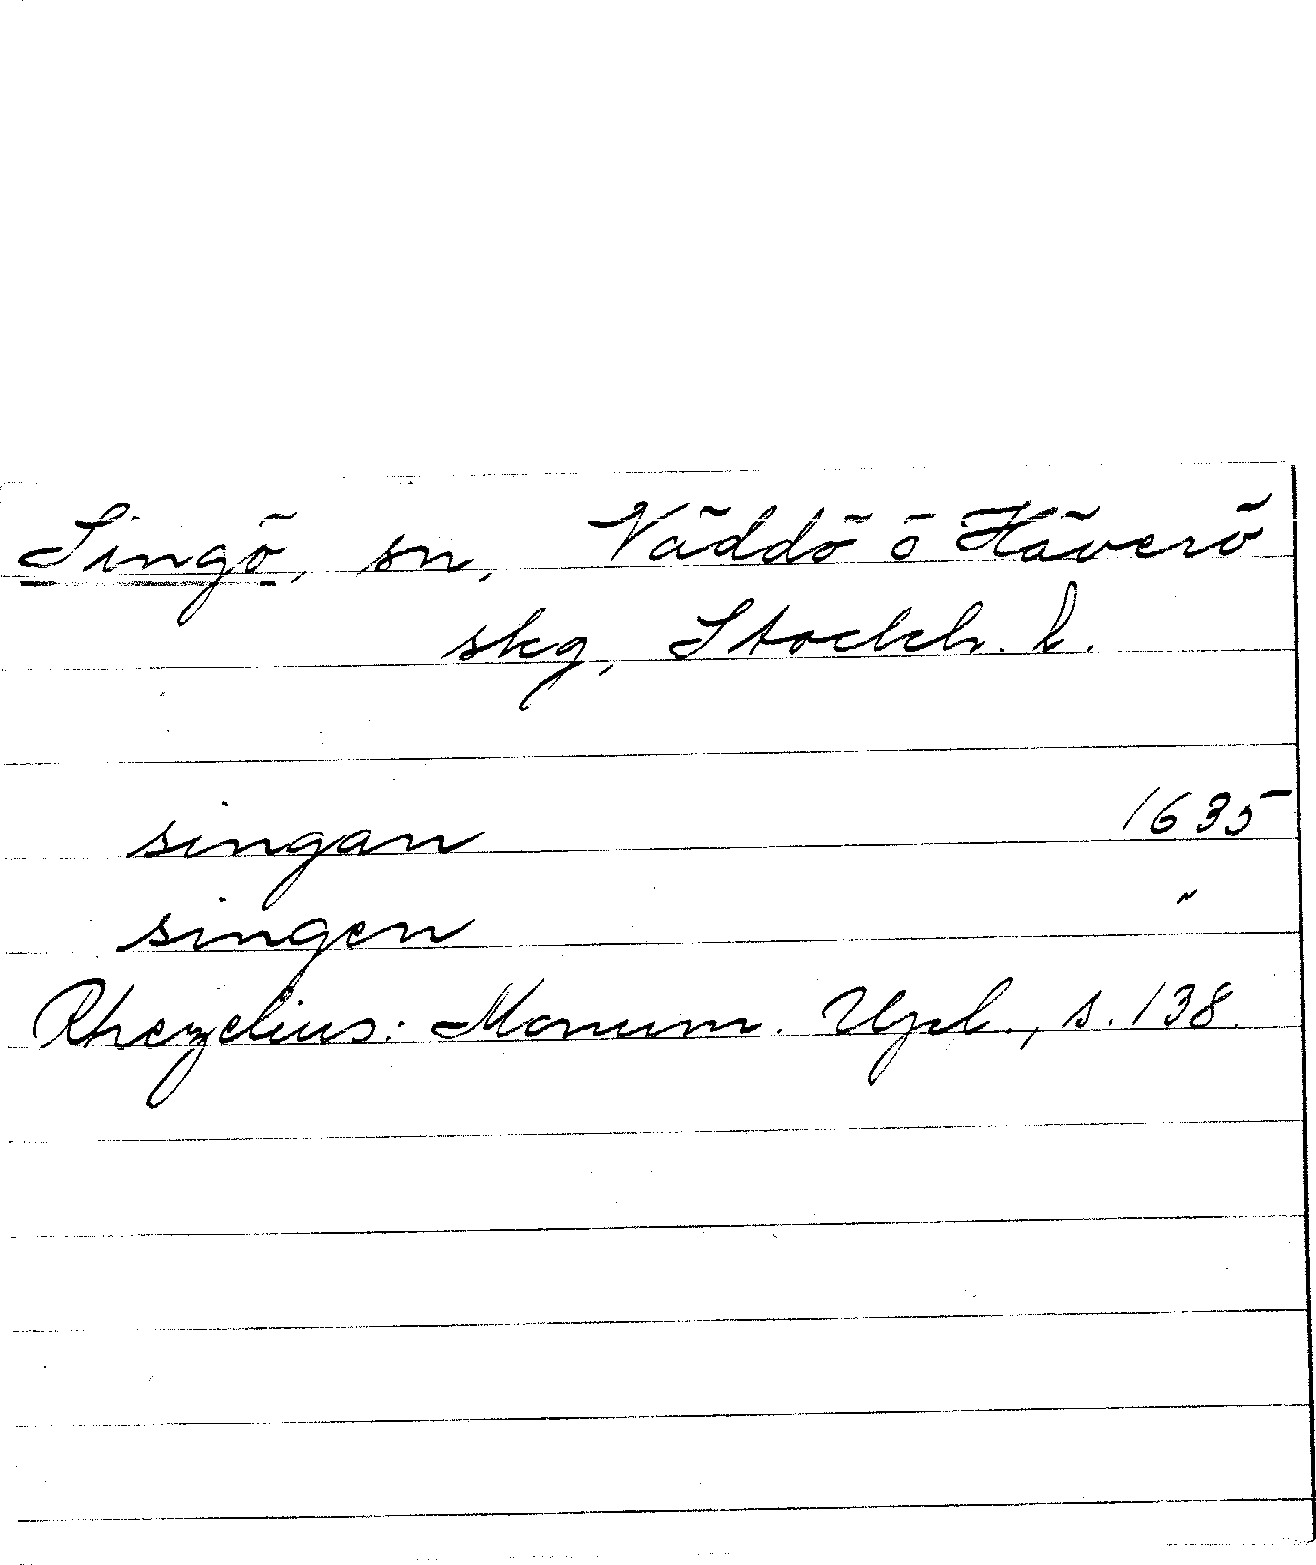 Singö, sn, Väddö o Häverö
skg, Stockh. l.
singan 1635
singen "
Rhezelius: Monum. Upl., s. 138.